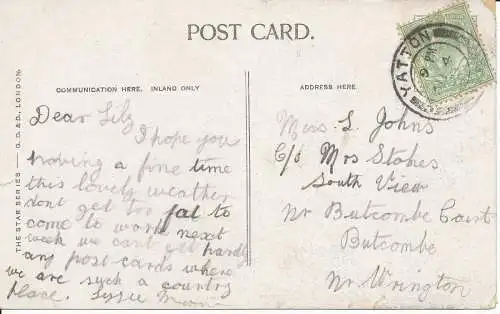 POST CARD.
COMMUNICATION HERE. INLAND ONLY
ADDRESS HERE.
THE STAR SERIES — G. D. & D., LONDON.
YATTON
Dear Lily
I hope you
having a fine time
this lovely weather
dont get too fat to
come to work next
week we cant get hardly
any post-cards where
we are such a country
place. Lessie
Miss L Johns
C/o Mrs Stokes
South View
Nr Butcombe Court
Butcombe
Nr Wrington